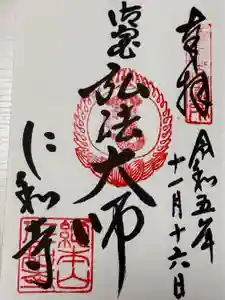 奉拝
令和五年
十一月十六日
弘法大師
仁和寺